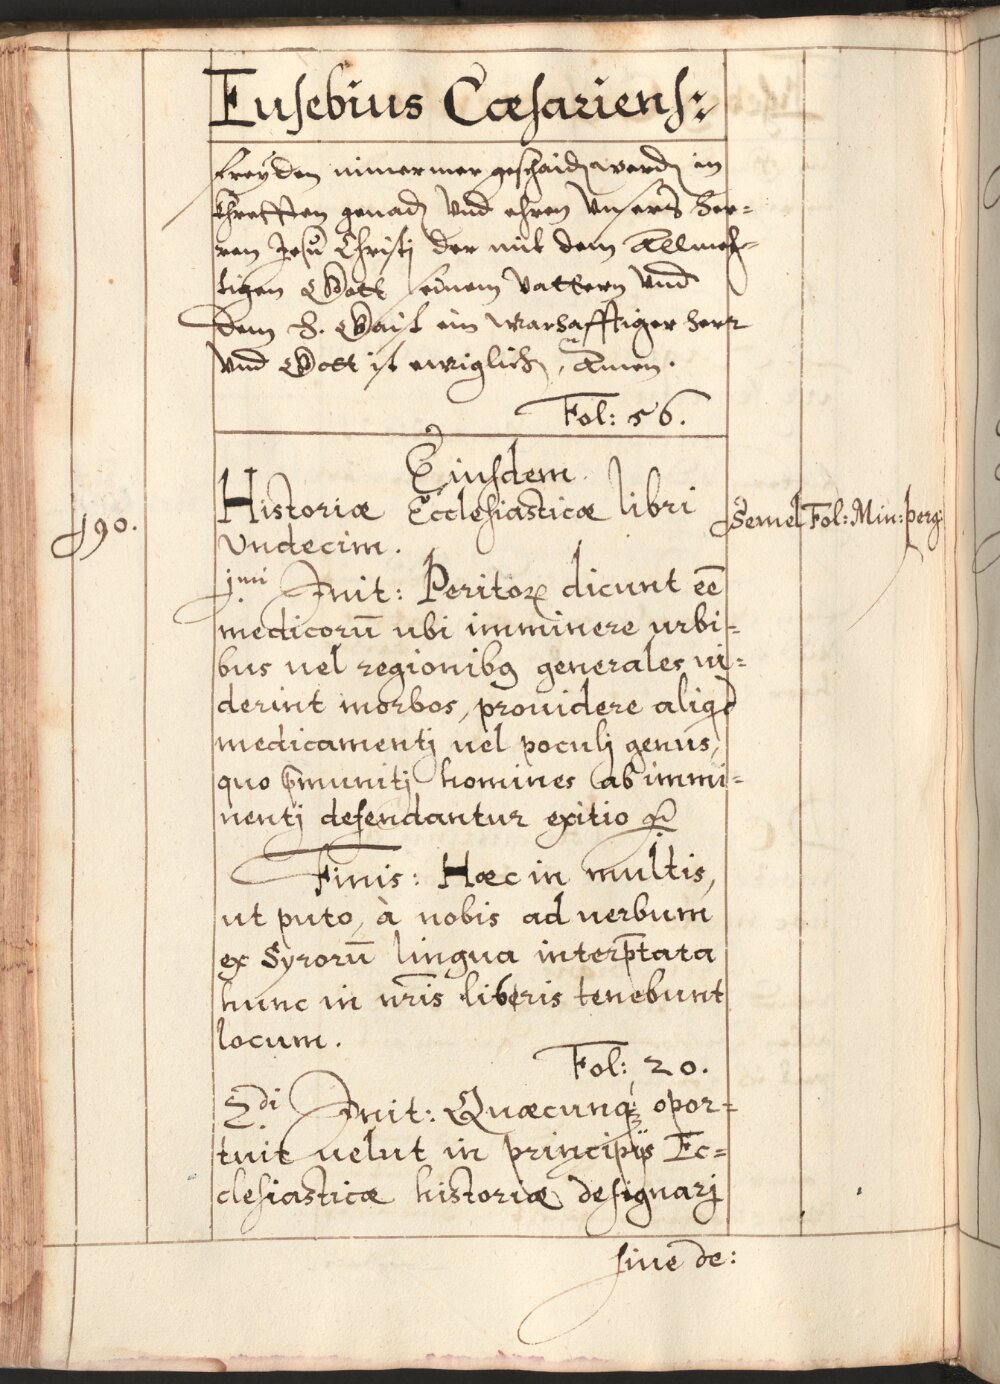 Eusebius Cæsariens:
freyden nimermer geschaiden werden in
Chrefften genaden vnd ehren vnsers her=
ren Jesu Christj der mit dem Allmech=
tigen Gott seinem vattern vnd
dem H. Gaist ein warhafftiger herr
vnd Gott ist ewiglich, Amen.
Fol: 56.
Eiusdem
Historiæ Ecclesiasticæ libri
Vndecim.
190.
Semel Fol: Min: perg:
jmi Init: Peritoꝝ dicunt eē
medicorū ubi imminere urbi=
bus uel regionibꝫ generales ui=
derint morbos, prouidere aliqd
medicamentj uel poculj genus,
quo p̄munitj homines ab immi=
nentj defendantur exitio ꝛc
Finis: Hæc in multis,
ut puto, à nobis ad uerbum
ex Syrorū lingua interp̄tata
hunc in nr̄is liberis tenebunt
locum.
Fol: 20.
2di Init: Quæcunqꝫ opor=
tuit uelut in principijs Ec=
clesiasticæ historiæ designarj
siue de: